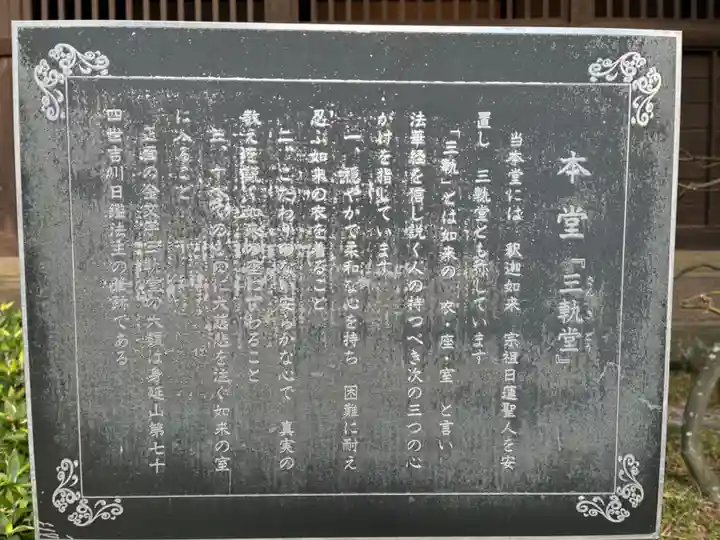 本堂『三軌堂』
さんきどう
当本堂には 釈迦如来 宗祖日蓮聖人を安
置し 三軌堂とも称しています
「三軌」とは如来の 衣・座・室 と言い
法華経を信じ説く人の持つべき次の三つの心
がけを指しています
一、穏やかで柔和な心を持ち 困難に耐え
忍ぶ如来の衣を着ること
二、こだわりのない安らかな心で 真実の
教えを説く如来の座にすわること
三、すべてのものに大慈悲を注ぐ如来の室
に入ること
正面の金文字三軌堂の大額は身延山第七十
四世吉川日鑑法主の
である